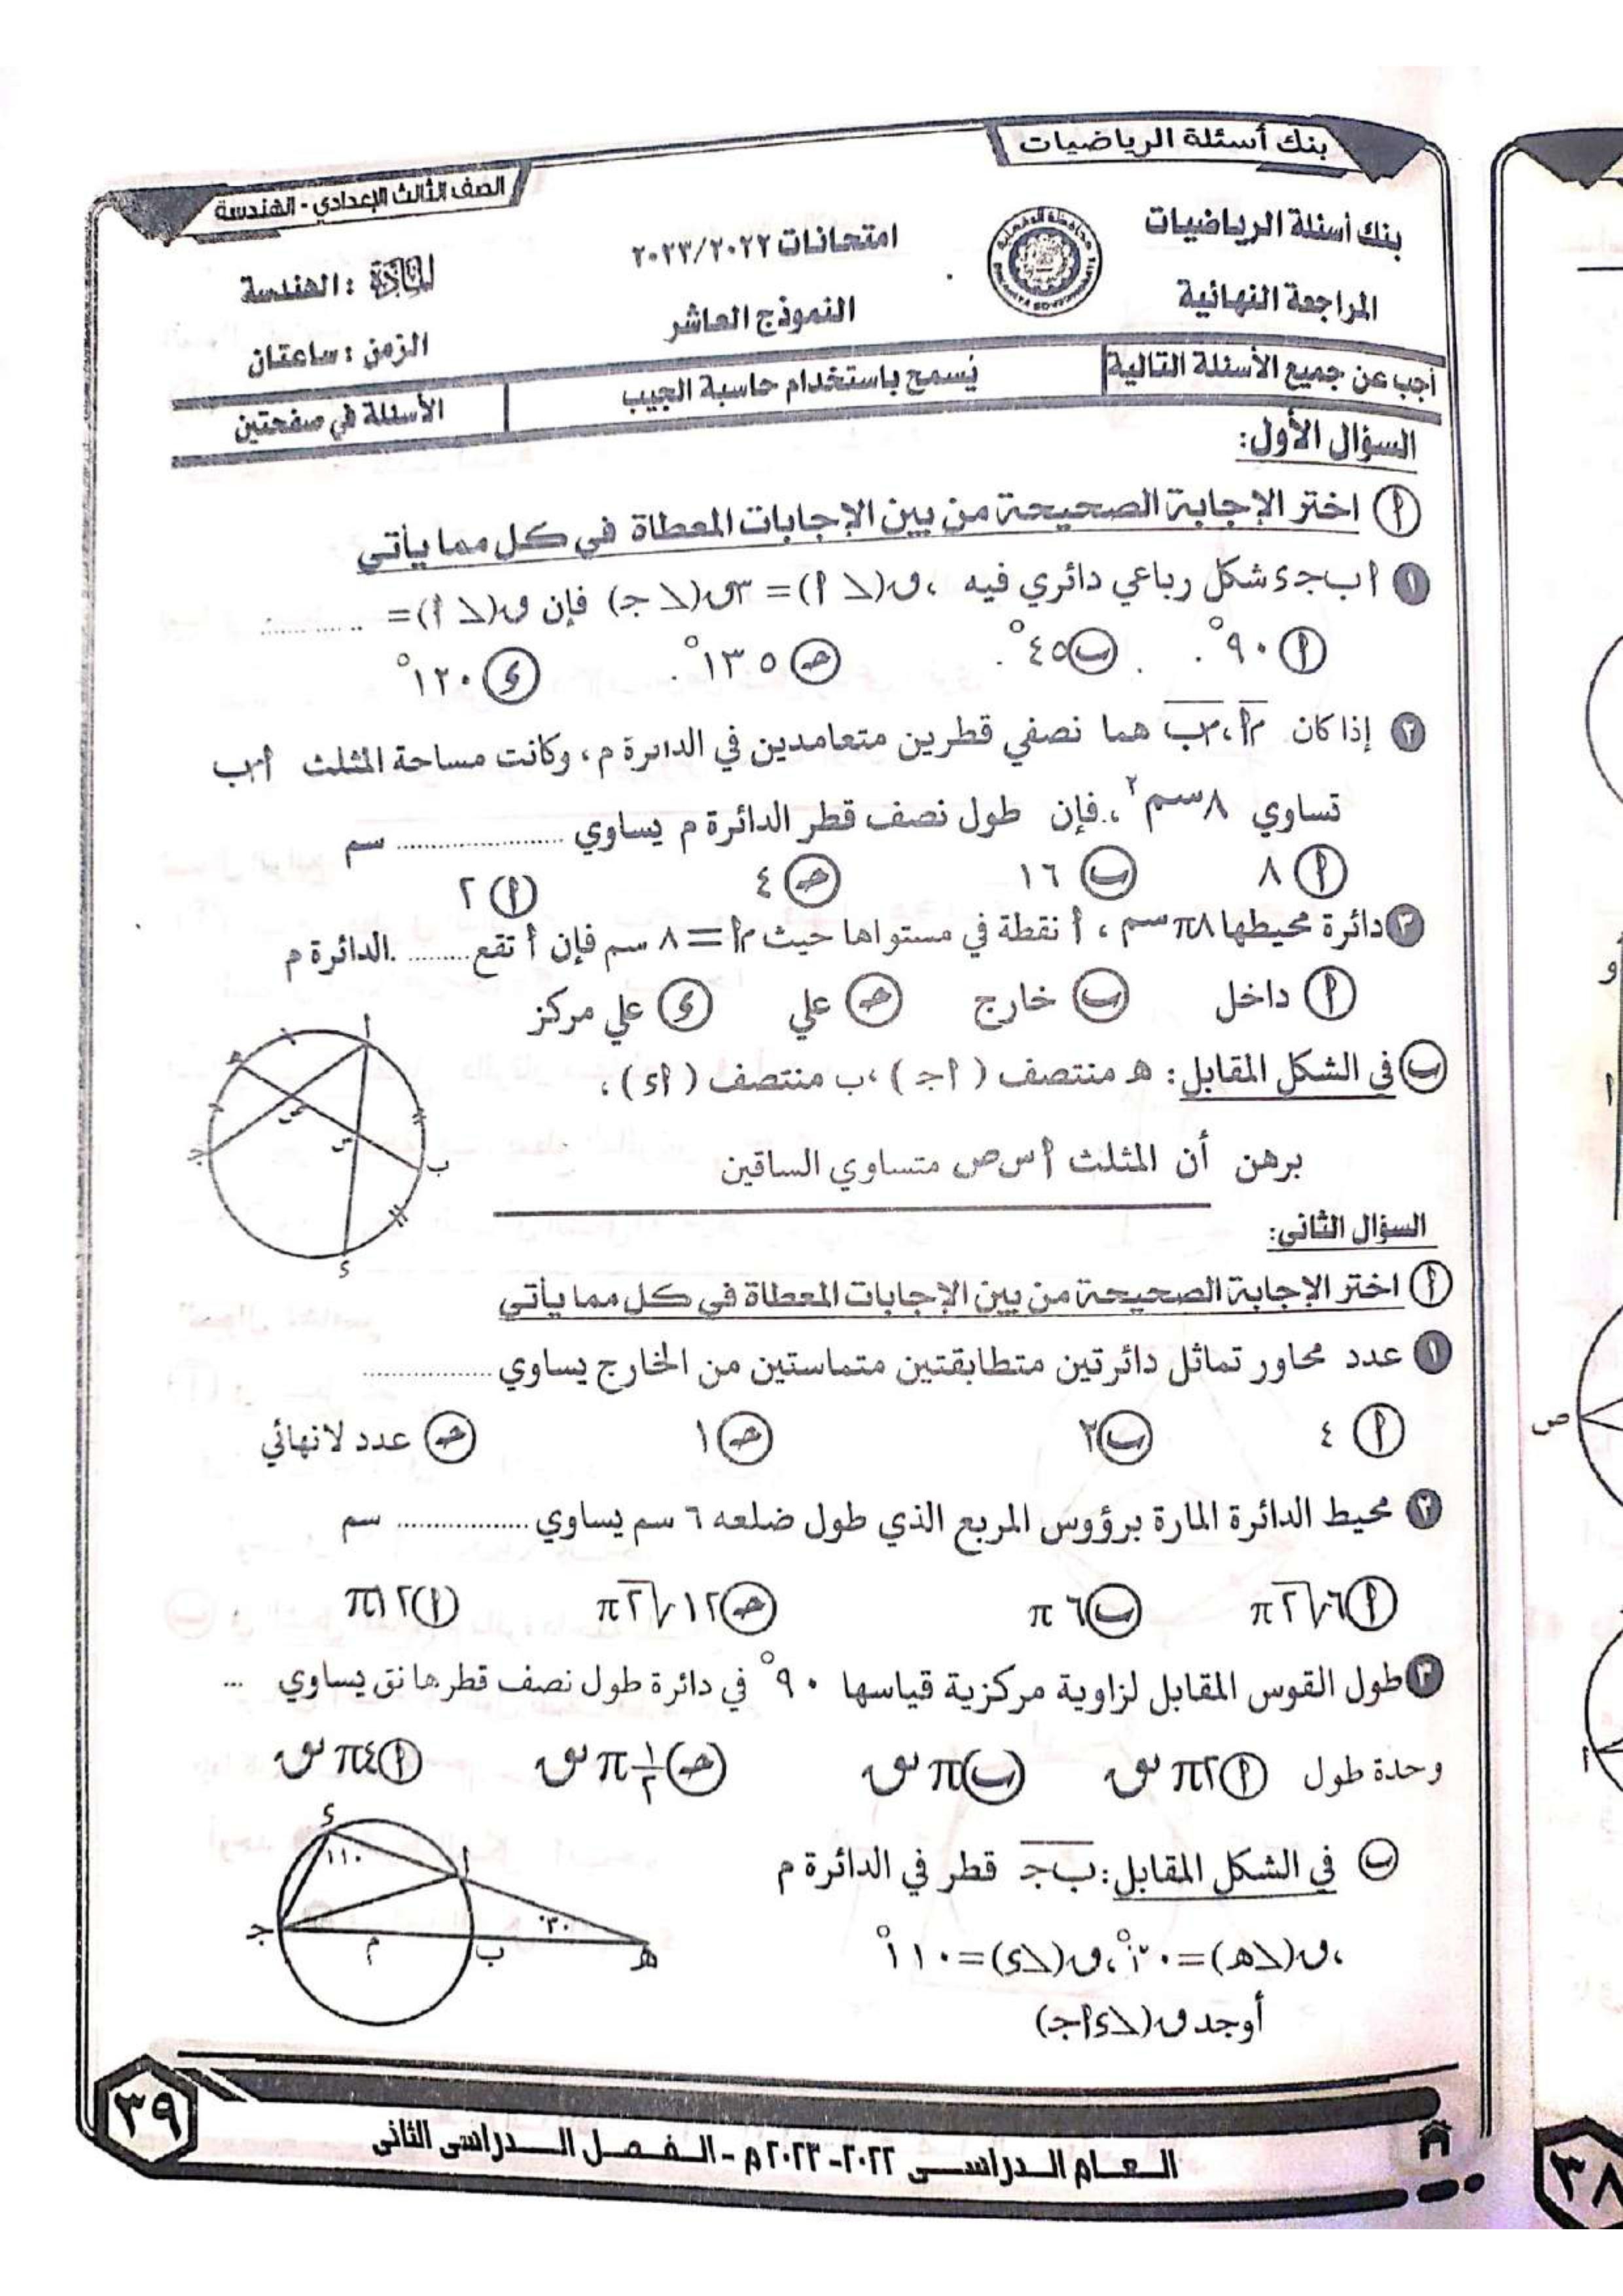 بنك أسئلة الرياضيات
الصف الثالث الإعدادي - الهندسة
بنك أسئلة الرياضيات
امتحانات ٢٠٢٣/٢٠٢٢
المادة : الهندسة
المراجعة النهائية
النموذج العاشر
الزمن : ساعتان
أجب عن جميع الأسئلة التالية
يُسمح باستخدام حاسبة الجيب
الأسئلة في صفحتين
السؤال الأول:
أ اختر الإجابة الصحيحة من بين الإجابات المعطاة في كل مما يأتي
١ أ ب جـ ء شكل رباعي دائري فيه ، ق(∠ أ) = ٣ق(∠ جـ) فإن ق(∠ أ) = ............
أ ٩٠° ب ٤٥° جـ ١٣٥° ء ١٢٠°
٢ إذا كان م أ ، م ب هما نصفي قطرين متعامدين في الدائرة م ، وكانت مساحة المثلث أ م ب
تساوي ٨ سم٢ ، فإن طول نصف قطر الدائرة م يساوي .................. سم
أ ٨ ب ١٦ جـ ٤ أ ٢
٣ دائرة محيطها ٨π سم ، أ نقطة في مستواها حيث م أ = ٨ سم فإن أ تقع ......... الدائرة م
أ داخل ب خارج جـ علي ء علي مركز
ب في الشكل المقابل: هـ منتصف ( أ جـ ) ، ب منتصف ( أ ء ) ،
برهن أن المثلث أ س ص متساوي الساقين
أ
هـ
ص
س
جـ
ب
ء
السؤال الثاني:
أ اختر الإجابة الصحيحة من بين الإجابات المعطاة في كل مما يأتي
١ عدد محاور تماثل دائرتين متطابقتين متماستين من الخارج يساوي ................
أ ٤ ب ٢ جـ ١ جـ عدد لانهائي
٢ محيط الدائرة المارة برؤوس المربع الذي طول ضلعه ٦ سم يساوي ................. سم
أ ٦√٢ π ب ٦ π جـ ١٢√٢ π أ ١٢ π
٣ طول القوس المقابل لزاوية مركزية قياسها ٩٠° في دائرة طول نصف قطرها نق يساوي ...
وحدة طول أ ٢π نق ب π نق جـ ١/٢ π نق أ ٤π نق
ب في الشكل المقابل: ب جـ قطر في الدائرة م
، ق(∠هـ) = ٣٠° ، ق(∠ء) = ١١٠°
أوجد ق(∠ء أ جـ)
ء
١١٠
أ
٣٠°
جـ
م
ب
هـ
٣٩
العـام الـدراسـي ٢٠٢٢-٢٠٢٣م - الـفـصـل الـدراسي الثاني
٣٨
و
أ
ص